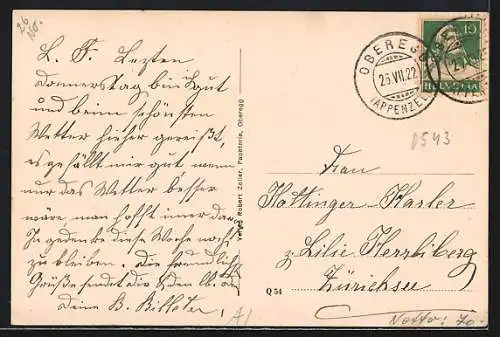 26
No.
L. F. Letzten
Donnerstag bin ich gut
und beim schönsten
Wetter hieher gereißt,
es gefällt mir gut wenn
nur das Wetter besser
wäre man hofft imer da
In gedenke diese Woche noch
zu bleiben. Die freundlich
Grüße sendet dir & den lb.
deine B. Billeter,
Verlag Robert Zoller, Papeterie, Oberegg
Q 54
OBEREGG
26.VII.22
(APPENZELL)
10
HELVETIA
0543
Frau
Hottinger-Karler
z. Lilie Herrliberg
Zürichsee
A/
Netto: 70.-